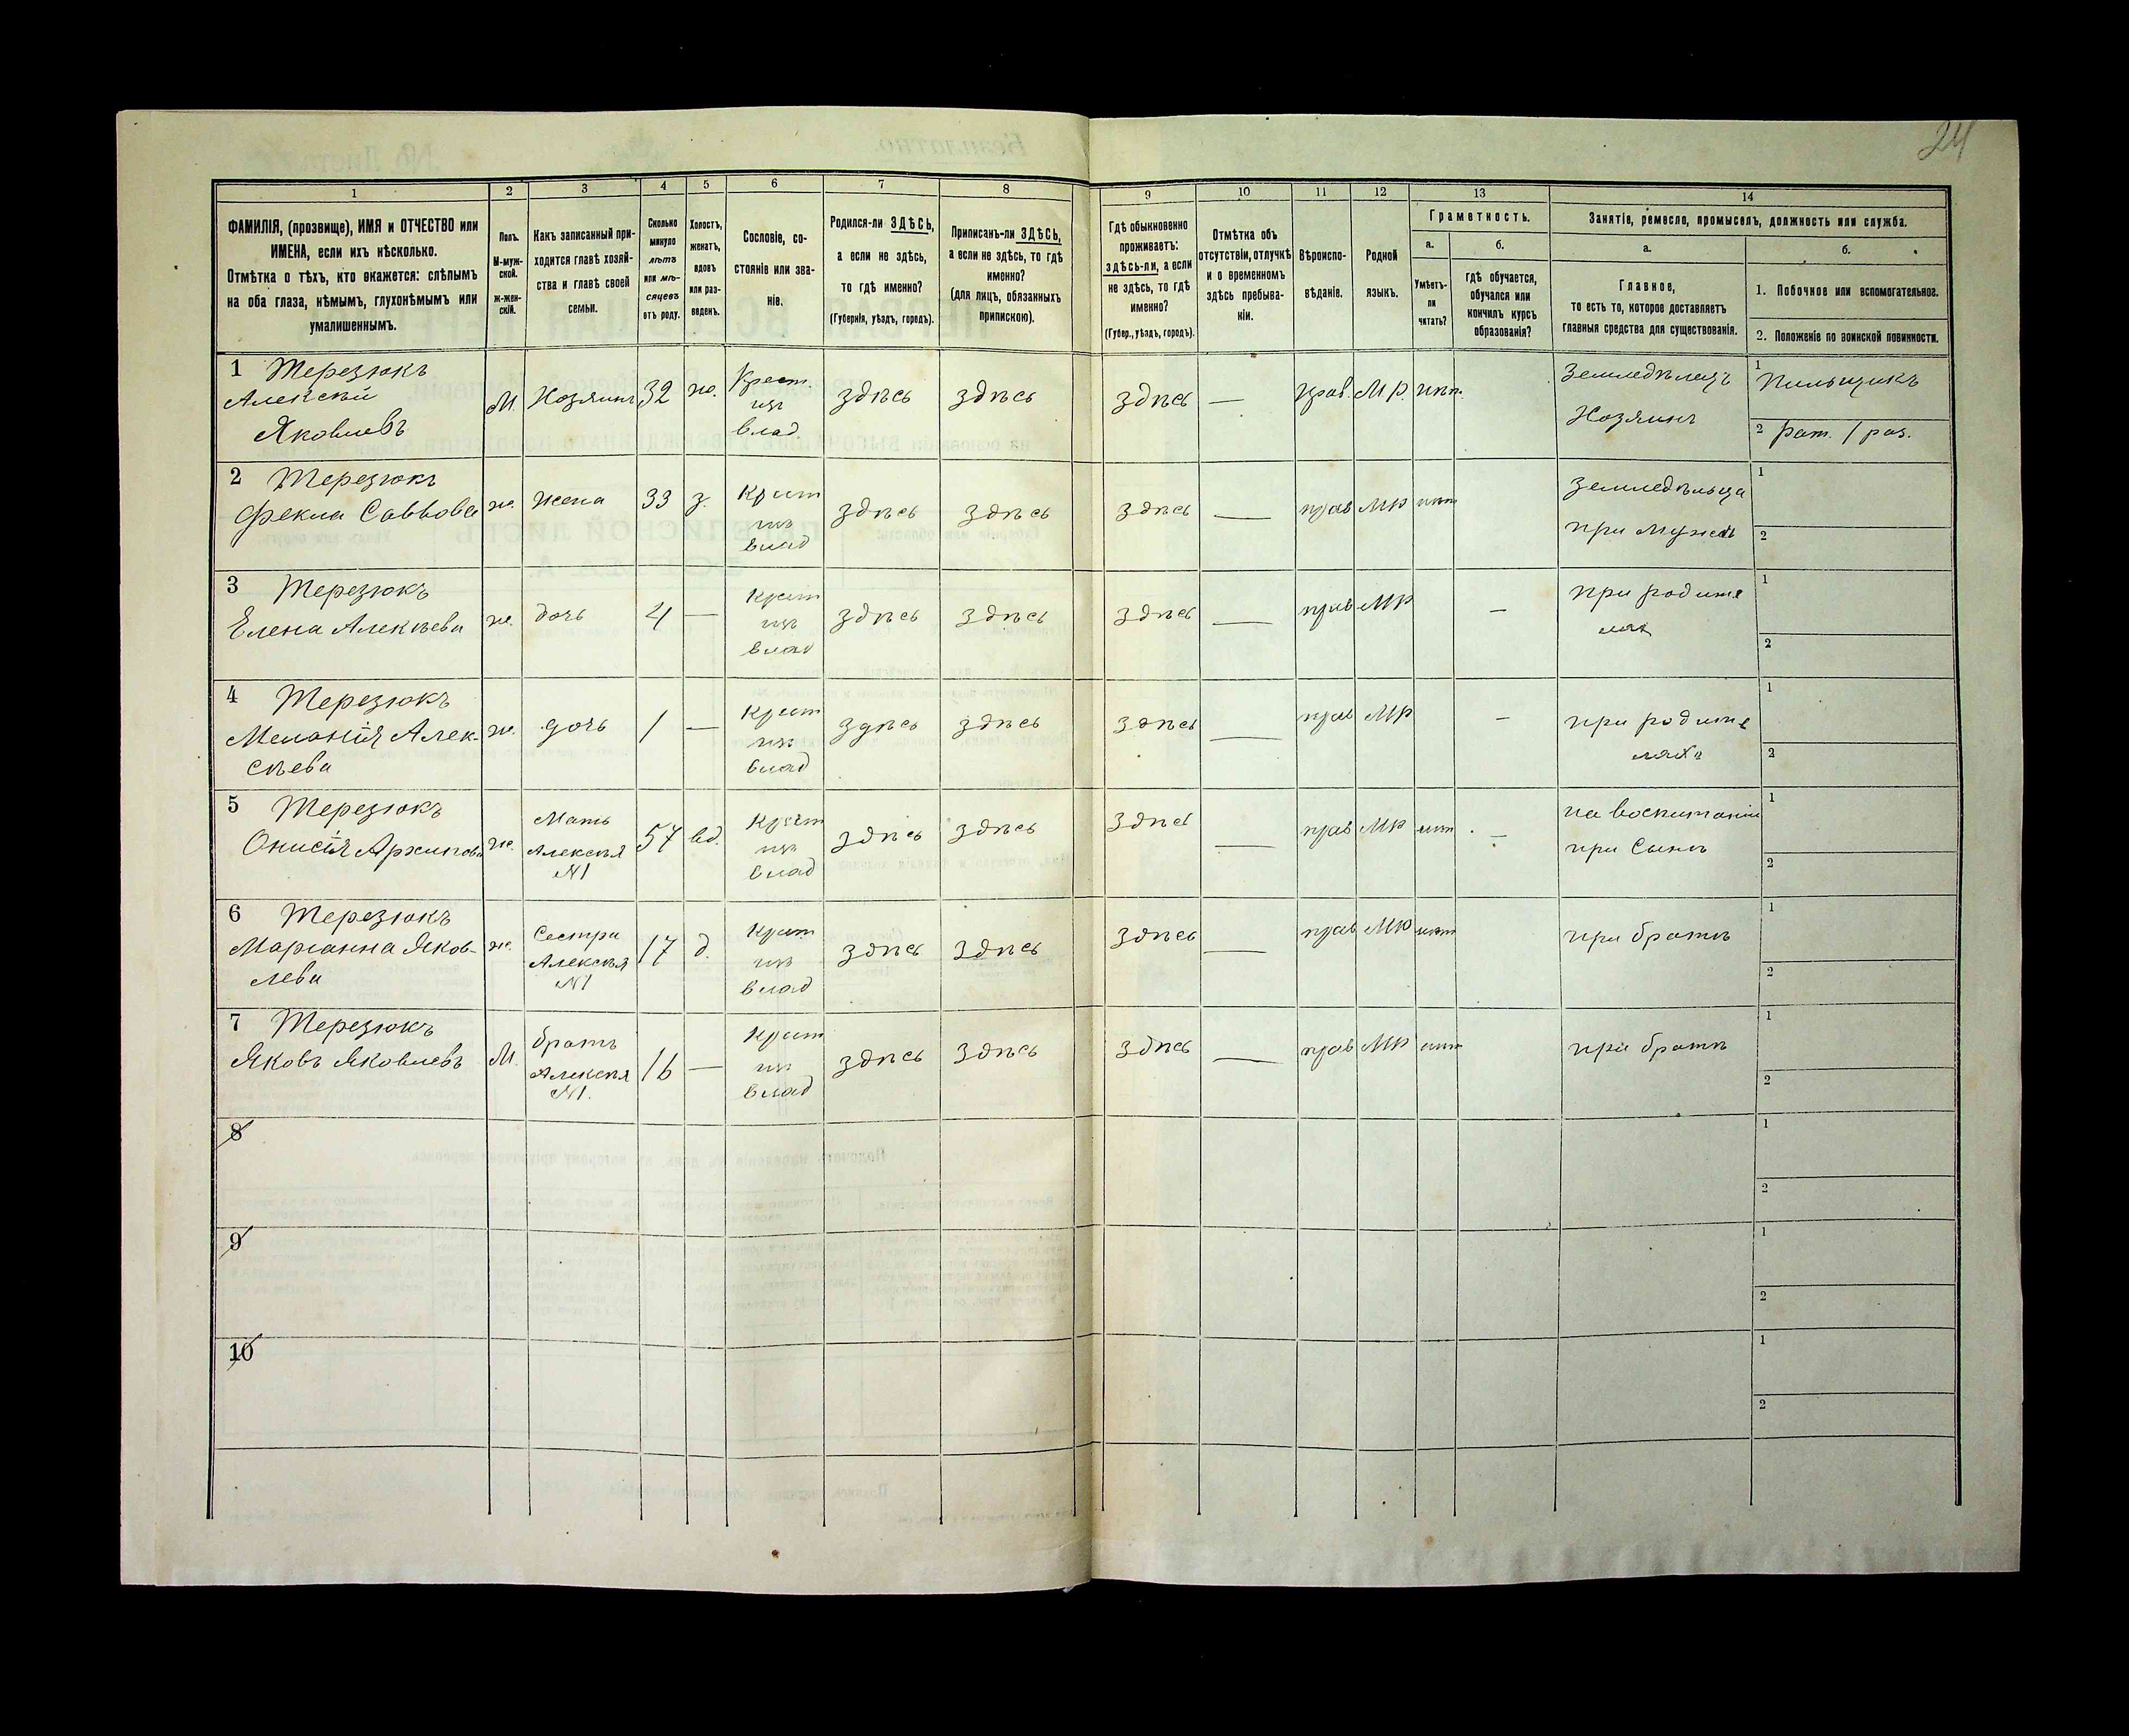 24
1 2 3 4 5 6 7 8 9 10 11 12 13 14
ФАМИЛІЯ, (прозвище), ИМЯ и ОТЧЕСТВО или
ИМЕНА, если ихъ нѣсколько.
Отмѣтка о тѣхъ, кто окажется: слѣпымъ
на оба глаза, нѣмымъ, глухонѣмымъ или
умалишеннымъ.
Полъ.
М-муж-
ской.
ж-жен-
скій.
Какъ записанный при-
ходится главѣ хозяй-
ства и главѣ своей
семьи.
Сколько
минуло
лѣтъ
или мѣ-
сяцевъ
отъ роду.
Холостъ,
женатъ,
вдовъ
или раз-
веденъ.
Сословіе, со-
стояніе или зва-
ніе.
Родился-ли ЗДѢСЬ,
а если не здѣсь,
то гдѣ именно?
(Губернія, уѣздъ, городъ).
Приписанъ-ли ЗДѢСЬ,
а если не здѣсь, то гдѣ
именно?
(для лицъ, обязанныхъ
припискою).
Гдѣ обыкновенно
проживаетъ:
здѣсь-ли, а если
не здѣсь, то гдѣ
именно?
(Губер., уѣздъ, городъ).
Отмѣтка объ
отсутствіи, отлучкѣ
и о временномъ
здѣсь пребыва-
ніи.
Вѣроиспо-
вѣданіе.
Родной
языкъ.
Граметность.
а.
Умѣетъ-
ли
читать?
б.
гдѣ обучается,
обучался или
кончилъ курсъ
образованія?
Занятіе, ремесло, промыселъ, должность или служба.
а.
Главное,
то есть то, которое доставляетъ
главныя средства для существованія.
б.
1. Побочное или вспомогательное.
2. Положеніе по воинской повинности.
1 Терезюкъ
Алексѣй
Яковлевъ
М.
Хозяинъ
32
ж.
Крест.
изъ
влад
здѣсь
здѣсь
здѣсь
—
прав.
М.р.
нѣт.
Земледѣлецъ
Хозяинъ
1 Пильщикъ
2 рат. 1 раз.
2 Терезюкъ
Фекла Саввова
ж.
жена
33
з.
Крест
изъ
влад
здѣсь
здѣсь
здѣсь
—
прав
Мр
нѣт
Земледѣльца
при мужѣ
1
2
3 Терезюкъ
Елена Алексѣева
ж.
дочь
4
—
Крест
изъ
влад
здѣсь
здѣсь
здѣсь
—
прав
Мр
—
при родите
лях
1
2
4 Терезюкъ
Меланія Алек-
сѣева
ж.
дочь
1
—
Крест
изъ
влад
здѣсь
здѣсь
здѣсь
—
прав
Мр
—
при родите
ляхъ
1
2
5 Терезюкъ
Онисія Архипова
ж.
Мать
Алексѣя
N1
57
вд.
Крест
изъ
влад
здѣсь
здѣсь
здѣсь
—
прав
Мр
нѣт
—
на воспитаніи
при Сынѣ
1
2
6 Терезюкъ
Маріанна Яков-
лева
ж.
Сестра
Алексѣя
N1
17
д.
Крест
изъ
влад
здѣсь
здѣсь
здѣсь
—
прав
Мр
нѣт
при братѣ
1
2
7 Терезюкъ
Яковъ Яковлевъ
М.
братъ
Алексѣя
N1.
16
—
Крест
изъ
влад
здѣсь
здѣсь
здѣсь
—
прав
Мр
нѣт
при братѣ
1
2
8
1
2
9
1
2
10
1
2